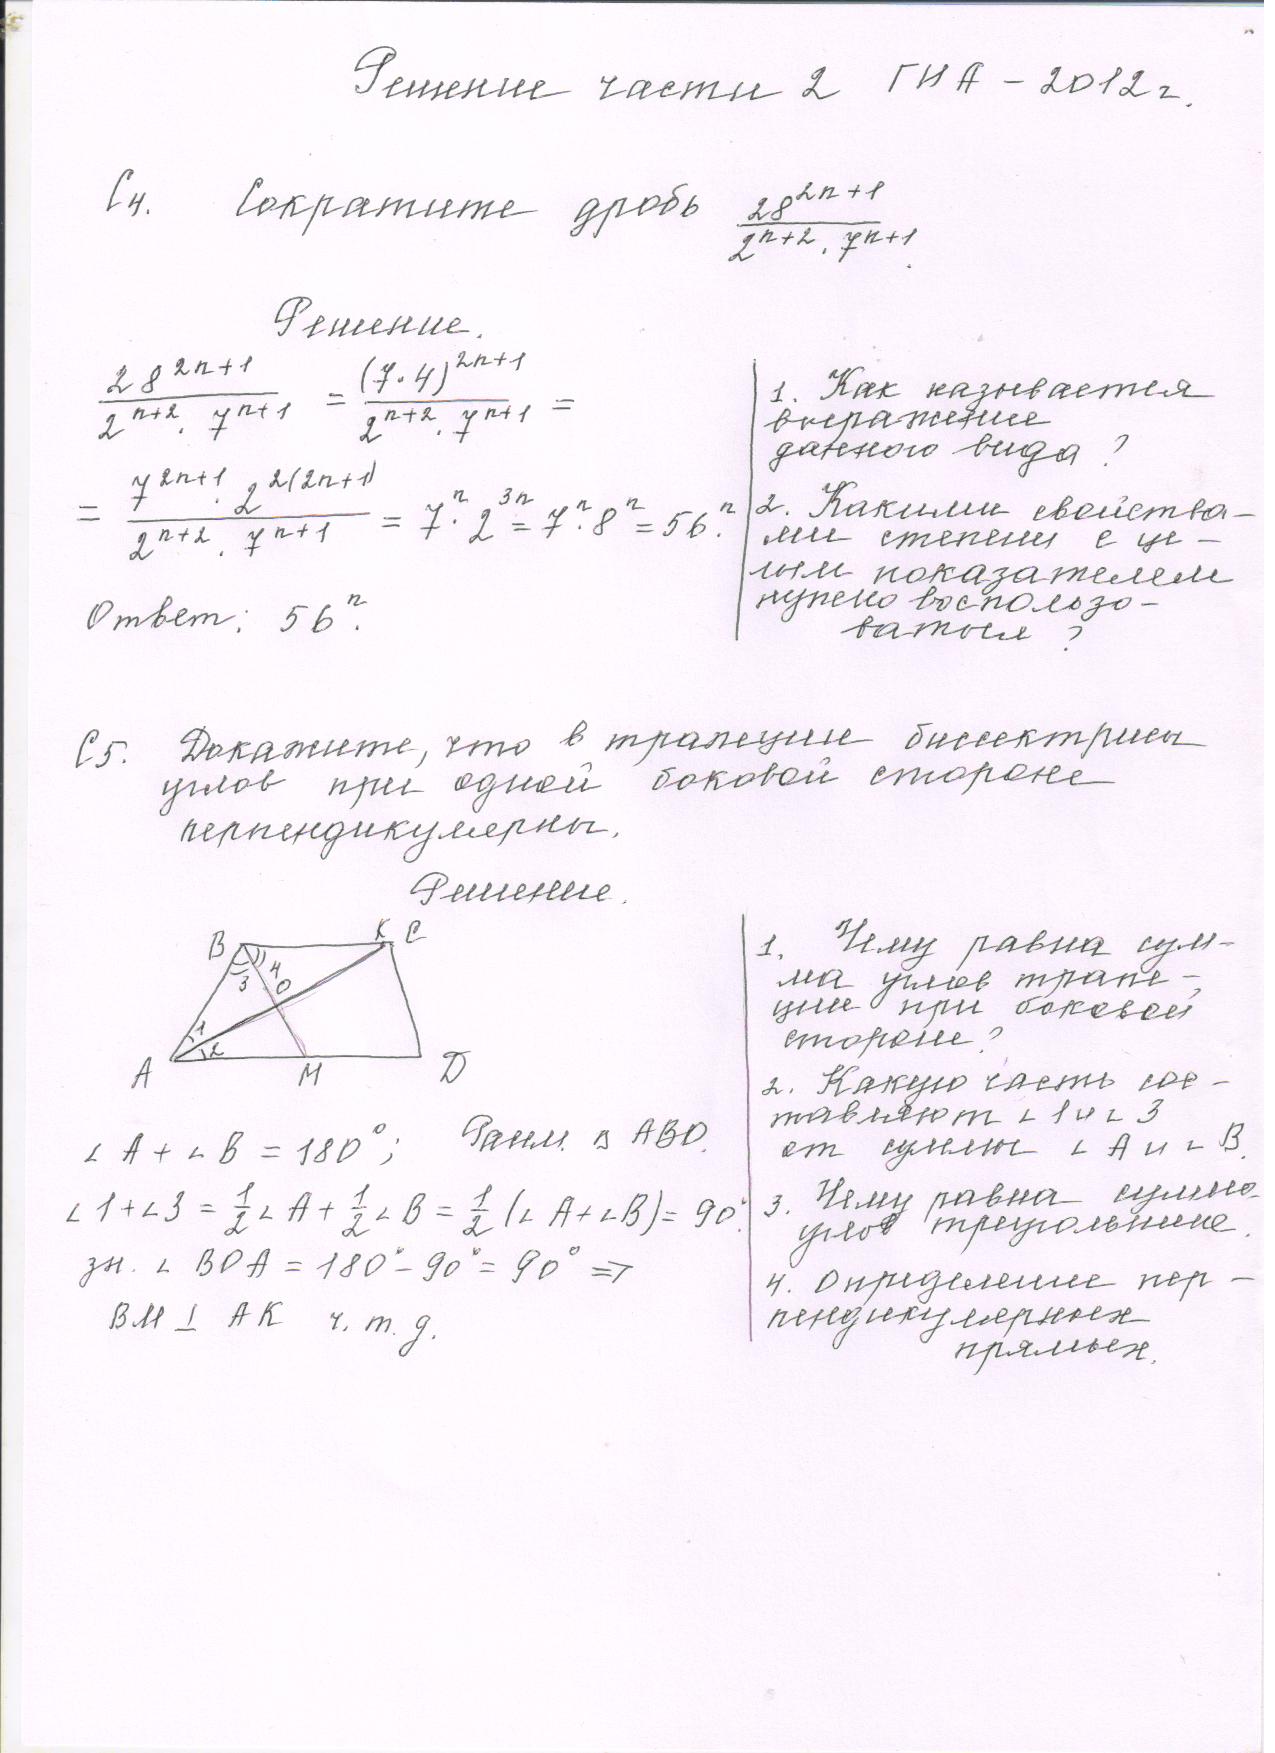 Решение части 2 ГИА - 2012г.
С4. Сократите дробь 28^{2n+1} / (2^{n+2} · 7^{n+1}).
Решение.
28^{2n+1} / (2^{n+2} · 7^{n+1}) = (7·4)^{2n+1} / (2^{n+2} · 7^{n+1}) =
= 7^{2n+1} · 2^{2(2n+1)} / (2^{n+2} · 7^{n+1}) = 7^n · 2^{3n} = 7^n · 8^n = 56^n.
Ответ: 56^n.
1. Как называется
выражение
данного вида?
2. Какими свойства-
ми степени с це-
лым показателем
нужно воспользо-
ваться?
С5. Докажите, что в трапеции биссектрисы
углов при одной боковой стороне
перпендикулярны.
Решение.
B K C
4
3 O
1
2
A M D
∠A + ∠B = 180°; Рассм. в ABO.
∠1+∠3 = 1/2 ∠A + 1/2 ∠B = 1/2 (∠A+∠B) = 90°.
зн. ∠BOA = 180° - 90° = 90° =>
BM ⊥ AK ч. т. д.
1. Чему равна сум-
ма углов трапе-
ции при боковой
стороне?
2. Какую часть сос-
тавляют ∠1 и ∠3
от суммы ∠A и ∠B.
3. Чему равна сумма
углов треугольника.
4. Определение пер-
пендикулярных
прямых.